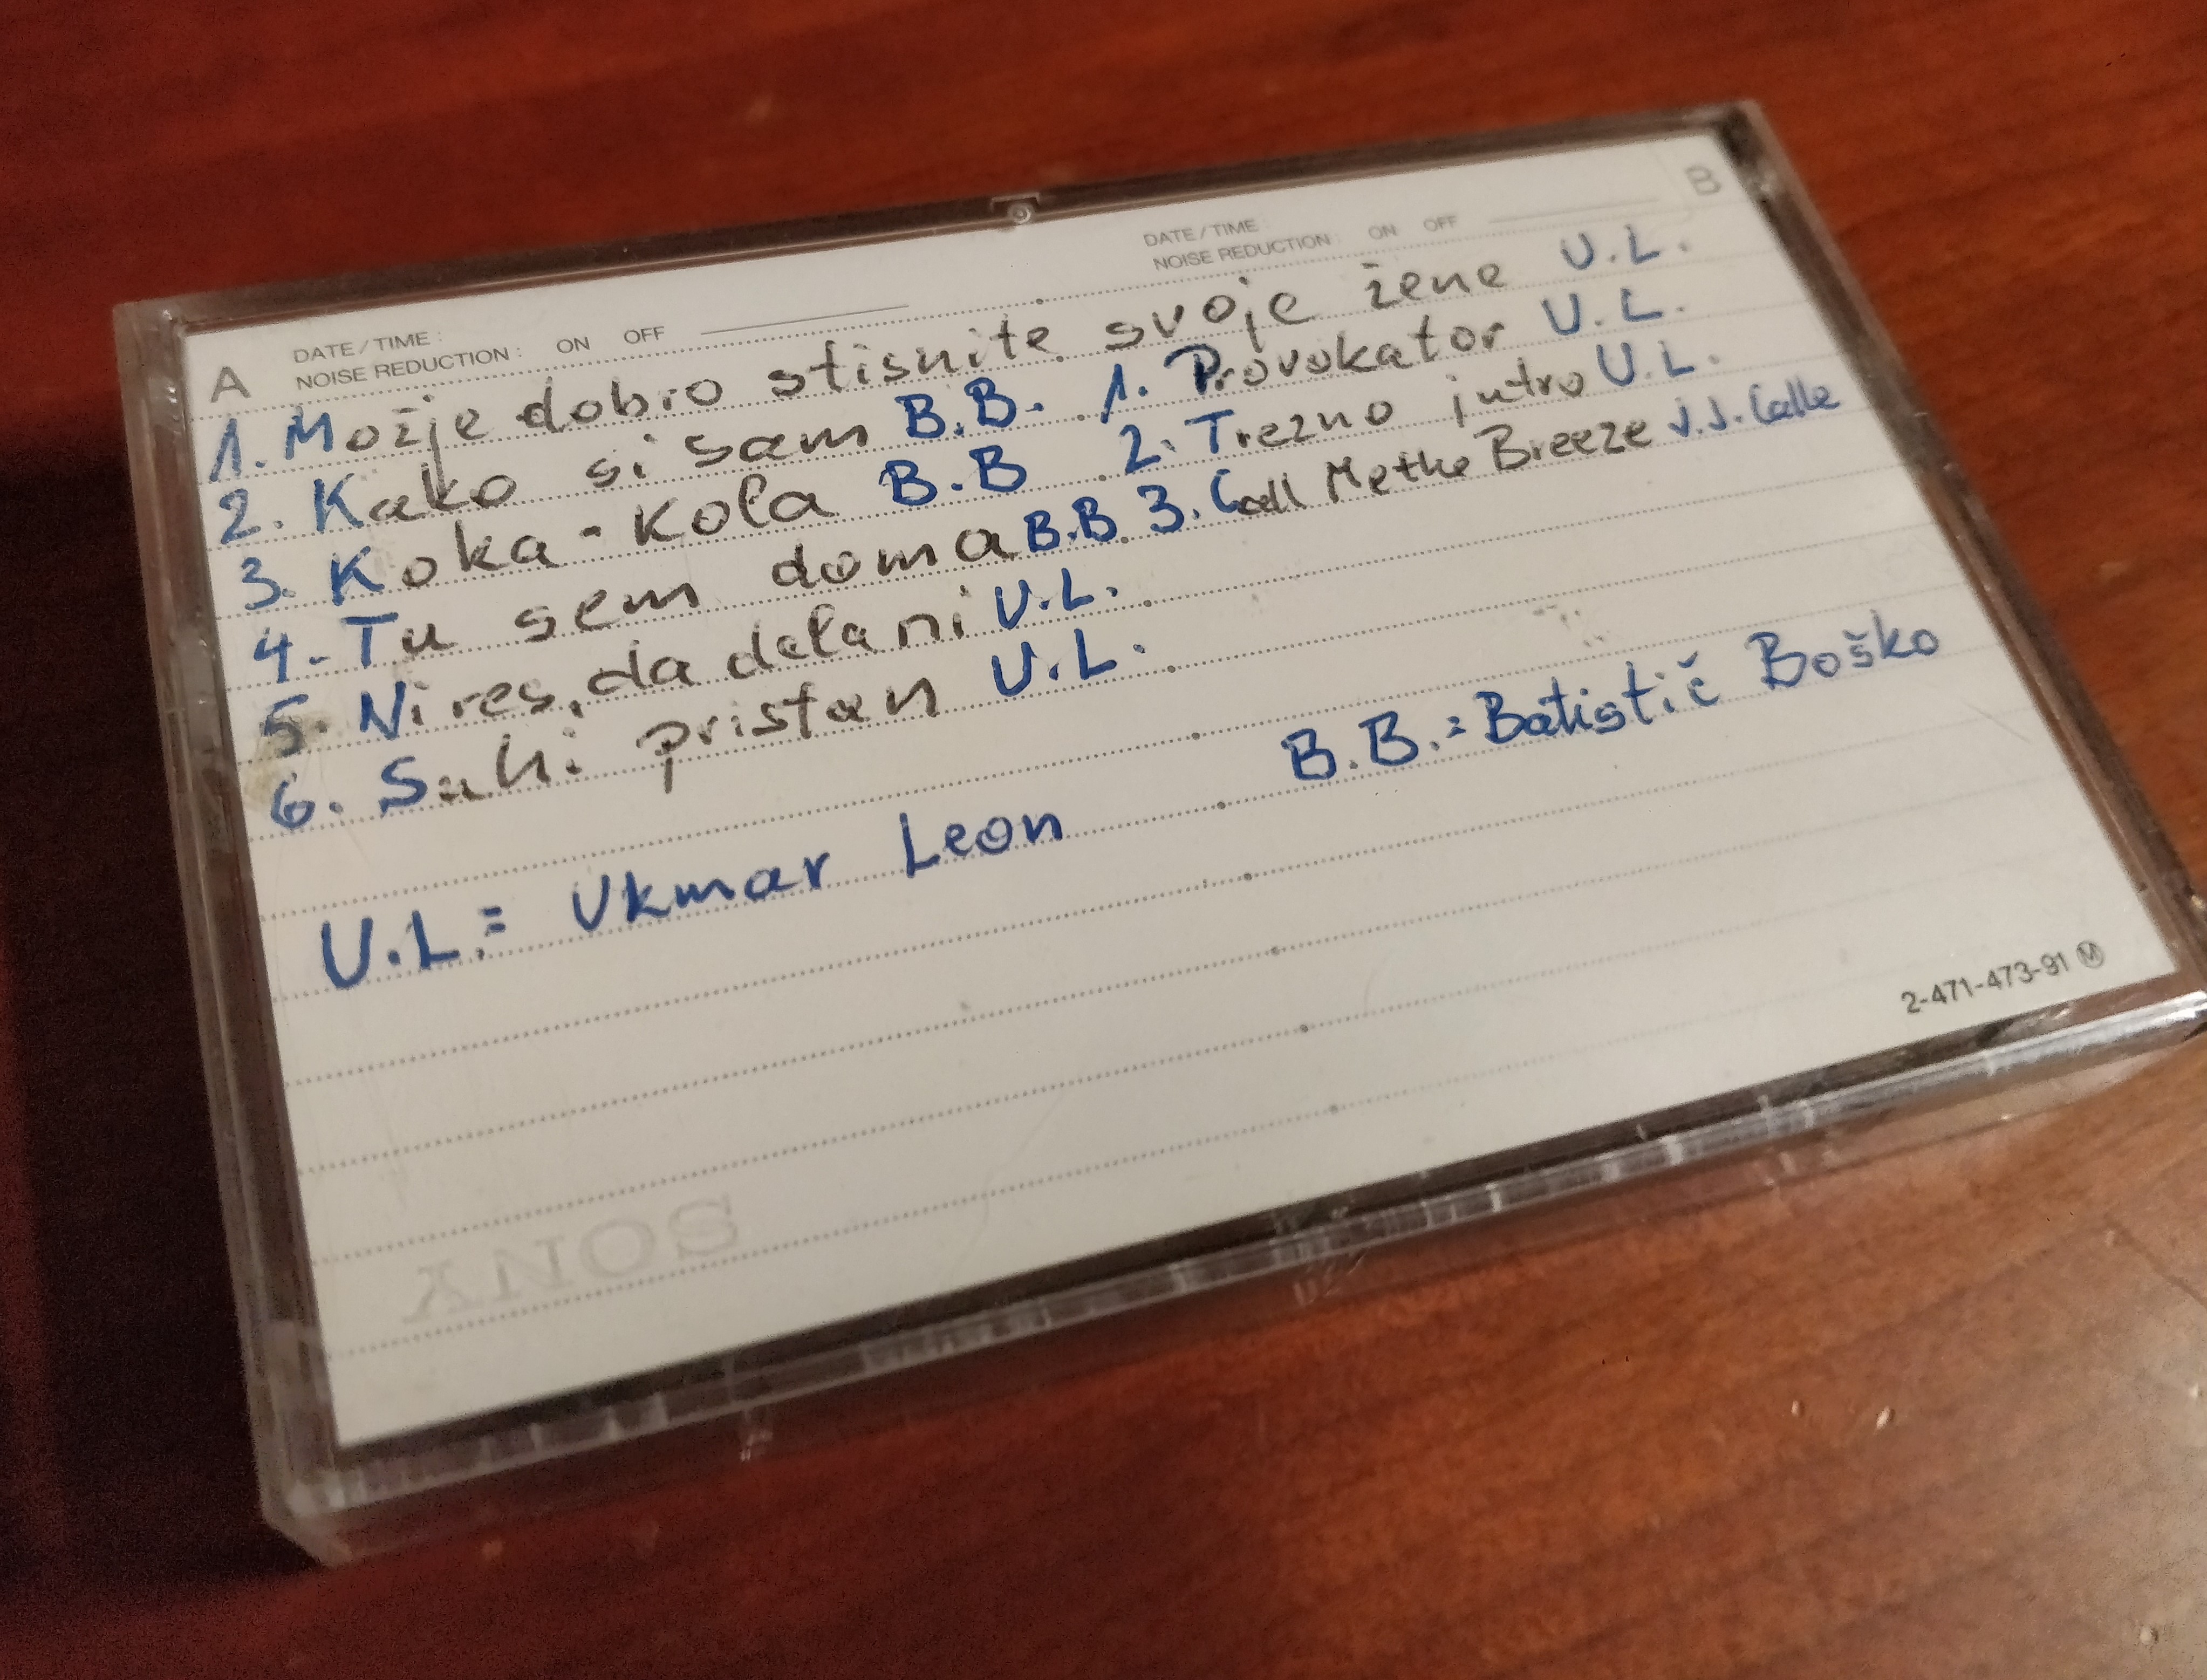 A DATE/TIME: NOISE REDUCTION: ON OFF
DATE/TIME NOISE REDUCTION: ON OFF B
1. Možje dobro stisnite svoje žene U.L.
2. Kako si sam B.B. 1. Provokator U.L.
3. Koka-Kola B.B 2. Trezno jutro U.L.
4. Tu sem doma B.B. 3. Call Me the Breeze J.J. Calle
5. Ni res, da dela ni U.L.
6. Suhi pristan U.L.
U.L.= Ukmar Leon B.B.= Batistič Boško
2-471-473-91 M
SONY